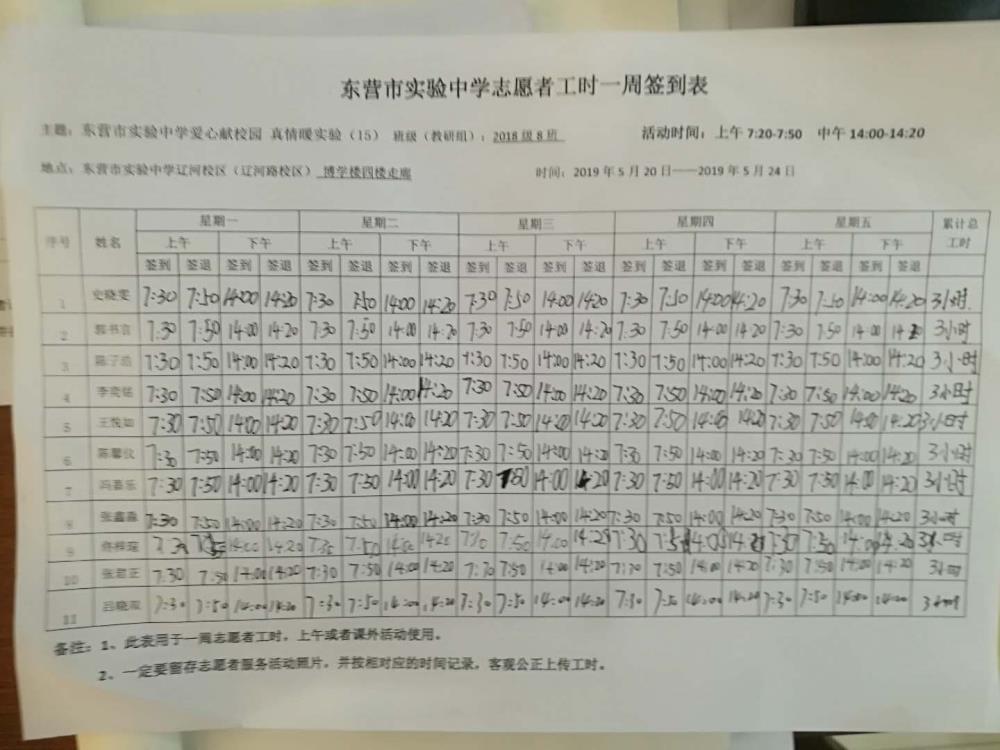 东营市实验中学志愿者工时一周签到表
主题：东营市实验中学爱心献校园 真情暖实验（15） 班级（教研组）：2018级8班 活动时间：上午7:20-7:50 中午14:00-14:20
地点：东营市实验中学辽河校区（辽河路校区）博学楼四楼走廊 时间：2019年5月20日——2019年5月24日
序号 姓名 星期一 星期二 星期三 星期四 星期五 累计总工时
上午 下午 上午 下午 上午 下午 上午 下午 上午 下午
签到 签退 签到 签退 签到 签退 签到 签退 签到 签退 签到 签退 签到 签退 签到 签退 签到 签退 签到 签退
1 史晓雯 7:30 7:50 14:00 14:20 7:30 7:50 14:00 14:20 7:30 7:50 14:00 14:20 7:30 7:50 14:00 14:20 7:30 7:50 14:00 14:20 3小时.
2 郭书言 7:30 7:50 14:00 14:20 7:30 7:50 14:00 14:20 7:30 7:50 14:00 14:20 7:30 7:50 14:00 14:20 7:30 7:50 14:00 3小时
3 7:30 7:50 14:00 14:20 7:30 7:50 14:00 14:20 7:30 7:50 14:00 14:20 7:30 7:50 14:00 14:20 7:30 7:50 14:00 14:20 3小时
4 李奕铭 7:30 7:50 14:00 14:20 7:30 7:50 14:00 14:20 7:30 7:50 14:00 14:20 7:30 7:50 14:00 14:20 7:30 7:50 14:00 14:20 3小时
5 王悦如 7:30 7:50 14:00 14:20 7:30 7:50 14:00 14:20 7:30 7:50 14:00 14:20 7:30 7:50 14:00 14:20 7:30 7:50 14:00 14:20 3小时
6 陈馨仪 7:30 7:50 14:00 14:20 7:30 7:50 14:00 14:20 7:30 7:50 14:00 14:20 7:30 7:50 14:00 14:20 7:30 7:50 14:00 14:20 3小时
7 冯嘉乐 7:30 7:50 14:00 14:20 7:30 7:30 14:00 14:20 7:30 7:50 14:00 14:20 7:30 7:50 14:00 14:20 7:30 7:30 14:00 14:20 3小时
8 张鑫淼 7:30 7:50 14:00 14:20 7:30 7:50 14:00 14:20 7:30 7:50 14:00 14:20 7:30 7:50 14:00 14:20 7:30 7:50 14:00 14:20 3小时
9 14:00 14:20 7:50 14:00 14:20 7:50 14:00 14:20 7:30 14:00 14:20 7:30 14:00 14:20 3小时
10 张君正 7:30 7:50 14:00 14:20 7:30 7:50 14:00 14:20 7:30 7:50 14:00 14:20 7:30 7:50 14:00 14:20 7:30 7:50 14:00 14:20 3小时
11 7:30 7:50 14:00 14:20 7:30 7:50 14:00 14:20 7:30 7:50 14:00 14:20 7:30 7:50 14:00 14:20 7:30 7:50 14:00 14:20 3小时
备注：1、此表用于一周志愿者工时，上午或者课外活动使用。
2、一定要留存志愿者服务活动照片，并按相对应的时间记录，客观公正上传工时。